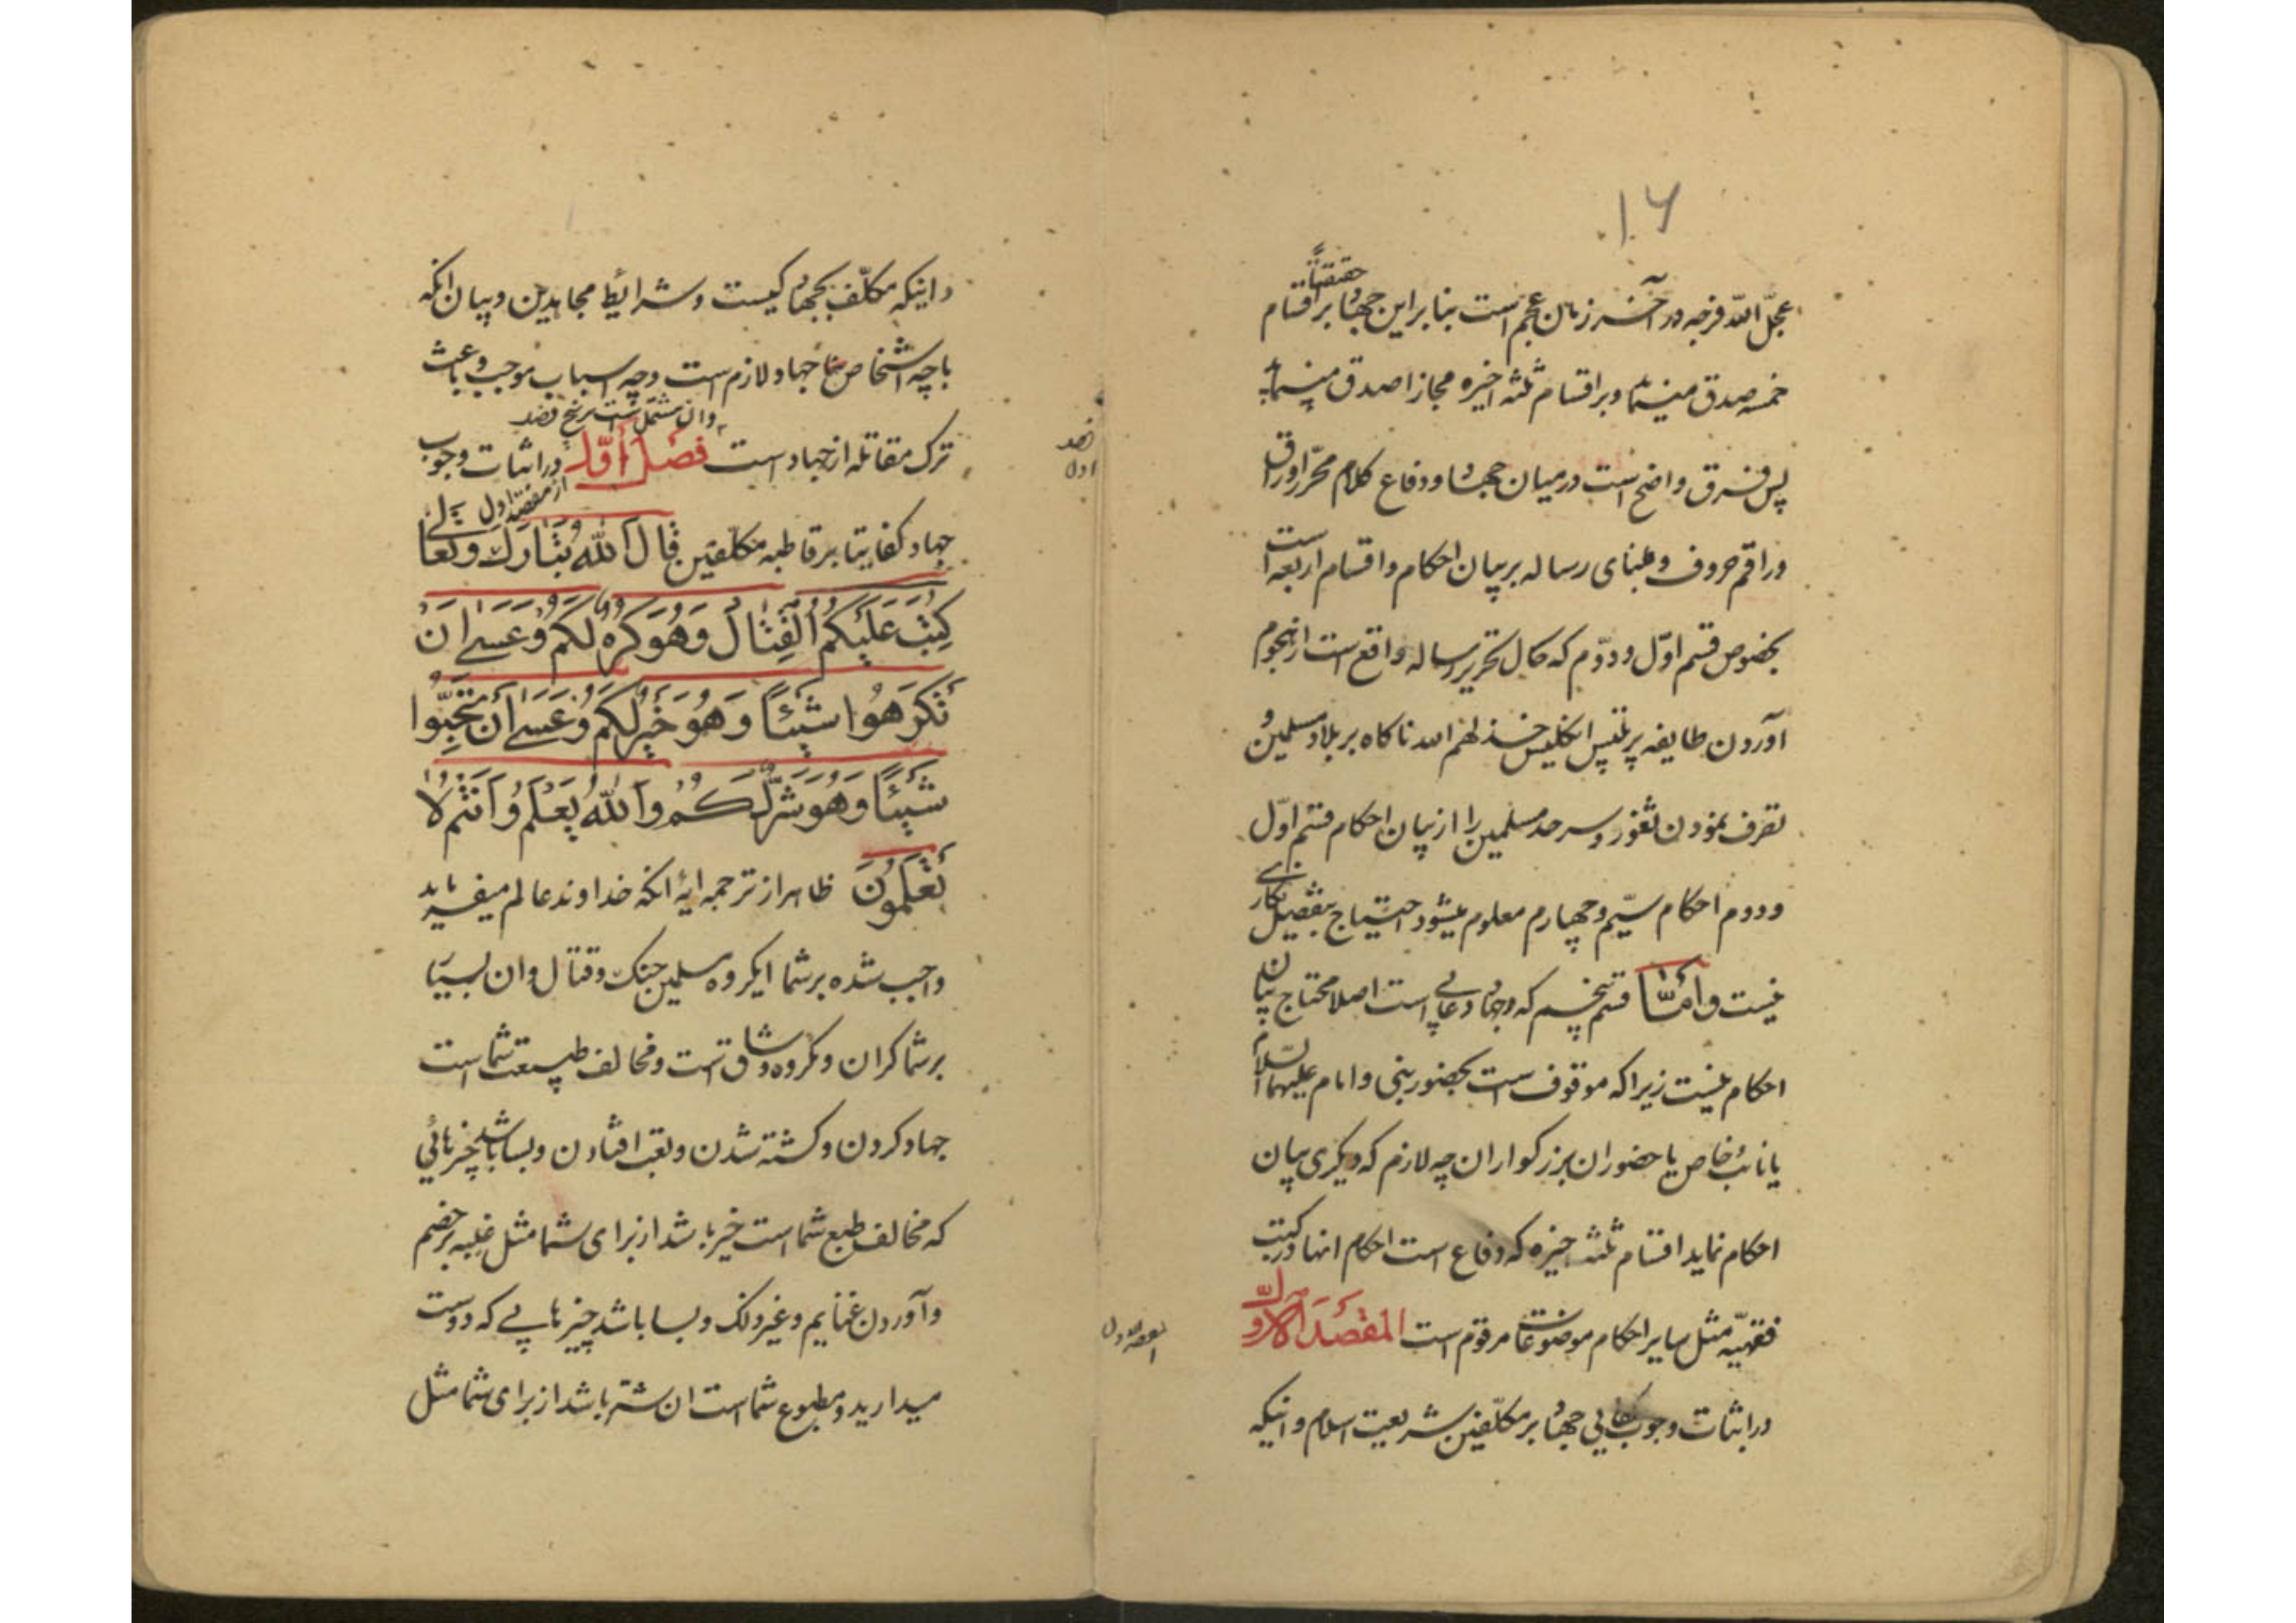 ۱۶
عجّل الله فرجه در آخر زمان عجم است بنا بر این جهاد بر اقسام
حقیقةً
خمسه صدق مینماید و بر اقسام ثلثه اخیره مجازا صدق مینماید
پس فرق واضح است در میان جهاد و دفاع کلام محرّر اوراق
و راقم حروف و مبنای رساله بر بیان احکام و اقسام اربعه است
بخصوص قسم اوّل و دوّم که حال تحریر رساله واقع است از هجوم
آوردن طایفه انکلیس خذلهم الله ناکاه بر بلاد مسلمین و
تصرف نمودن ثغور و سرحد مسلمین را از بیان احکام قسم اوّل
و دوم احکام سیّم و چهارم معلوم میشود احتیاج بتفصیل
نیست و امّا قسم پنجم که جهاد است اصلا محتاج بیان
احکام نیست زیرا که موقوف است بحضور نبی و امام علیهما السّلام
یا نائب خاص با حضور ان بزرکواران چه لازم که دیکری بیان
احکام نماید اقسام ثلثه اخیره که دفاع است احکام انها در کتب
فقهیّه مثل سایر احکام موضوعات مرقوم است المقصد الاوّل
در اثبات وجوب کفایی جهاد بر مکلّفین بشریعت اسلام و اینکه
المقصد الاول
و اینکه مکلّف بجهاد کیست و شرایط مجاهدین و بیان انکه
با چه اشخاص جهاد لازم است و چه اسباب موجب و باعث
ترک مقاتله از جهاد است فصل اوّل در اثبات وجوب
و ان مشتمل است بر پنج فصل
از مقصد اول
فصل اول
جهاد کفایتا بر قاطبه مکلّفین قال الله تبارک و تعالی
كُتِبَ عَلَيْكُمُ الْقِتَالُ وَهُوَ كُرْهٌ لَكُمْ وَعَسَى اَنْ
تَكْرَهُوا شَيْئًا وَهُوَ خَيْرٌ لَكُمْ وَعَسَى أَنْ تُحِبُّوا
شَيْئًا وَهُوَ شَرٌّ لَكُمْ وَاللهُ يَعْلَمُ وَاَنْتُمْ لا
تَعْلَمُونَ ظاهر از ترجمه ایهٔ انکه خداوند عالم میفرماید
واجب شده بر شما ایکروه مسلمین جنک و قتال و ان بسیار
بر شما کران و مکروه و شاق است و مخالف طبیعت شما است
جهاد کردن و کشته شدن و تعب افتادن و بسا باشد چیزهائی
که مخالف طبع شما است خیر باشد از برای شما مثل غلبه بر خصم
و آوردن غنایم و غیر ذلک و بسا باشد چیزهایی که دوست
میدارید و مطبوع شما است ان شر باشد از برای شما مثل